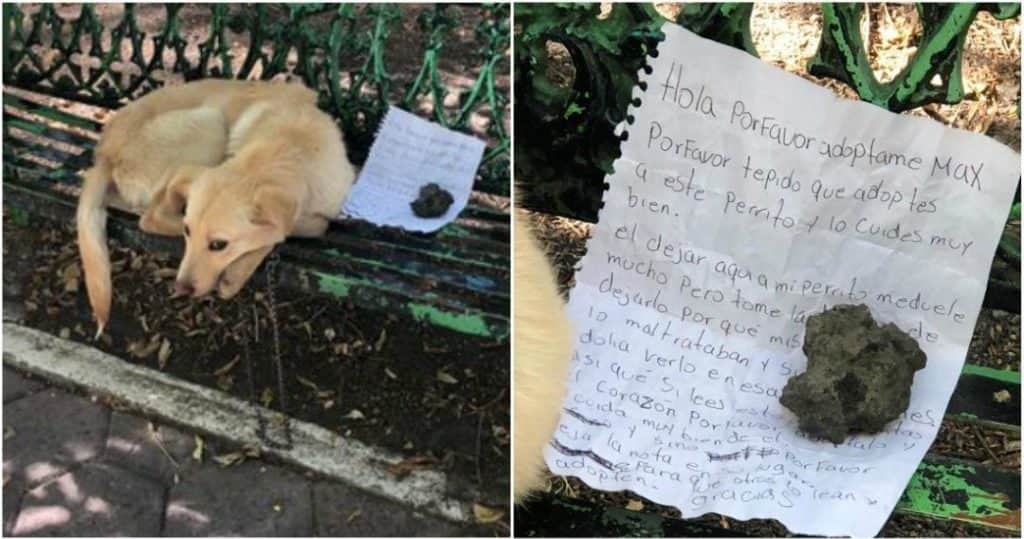 Hola PorFavor adoptame MAX
PorFavor tepido que adoptes
a este Perrito y lo Cuides muy
bien.
el dejar aqui a mi perrito meduele
mucho Pero tome la de
dejarlo Por qué mis
lo maltrataban y
dolia verlo en esa
así qué si lees este
Corazón Por favor
cuida muy bien de el
y sino PorFavor
la nota en su lugar
Para que otros lo lean y
adopten. gracias